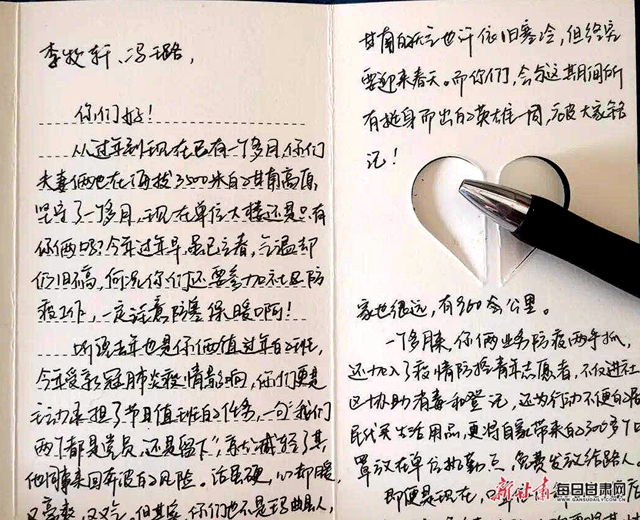 李牧轩、冯璐,
你们好!
从过年到现在已有一个多月,你们
夫妻俩也在海拔3500米的甘南高原,
坚守了一个多月,现在单位大楼还是只有
你俩吧?今年过年早,虽已立春,气温却
仍旧不高,何况你们还要参加社区防
疫工作,一定注意防寒保暖啊!
听说去年也是你俩值过年的班,
今年受新冠肺炎疫情影响,你们更是
主动承担了节日值班的任务,一句“我们
两个都是党员,还是留下”,系统减轻了其
他同事来回奔波的风险。话虽硬,心却暖,
又豪爽,又义气。但其实,你们也不是玛曲县人,
甘南的祁连也许依旧寒冷,但终究
要迎来春天。而你们,会与这期间所
有挺身而出的英雄一同,被大家铭
记!
家也很远,有360余公里。
一个多月来,你俩业务防疫两手抓,
还加入了疫情防控青年志愿者,不仅进社
区协助消毒和登记,还为行动不便的居
民代买生活用品,更将自家带来的300多个口
罩放在单位执勤点,免费发放给路人。
即便是现在,
新甘肃
每日甘肃网
GANSUDAILY.COM.CN